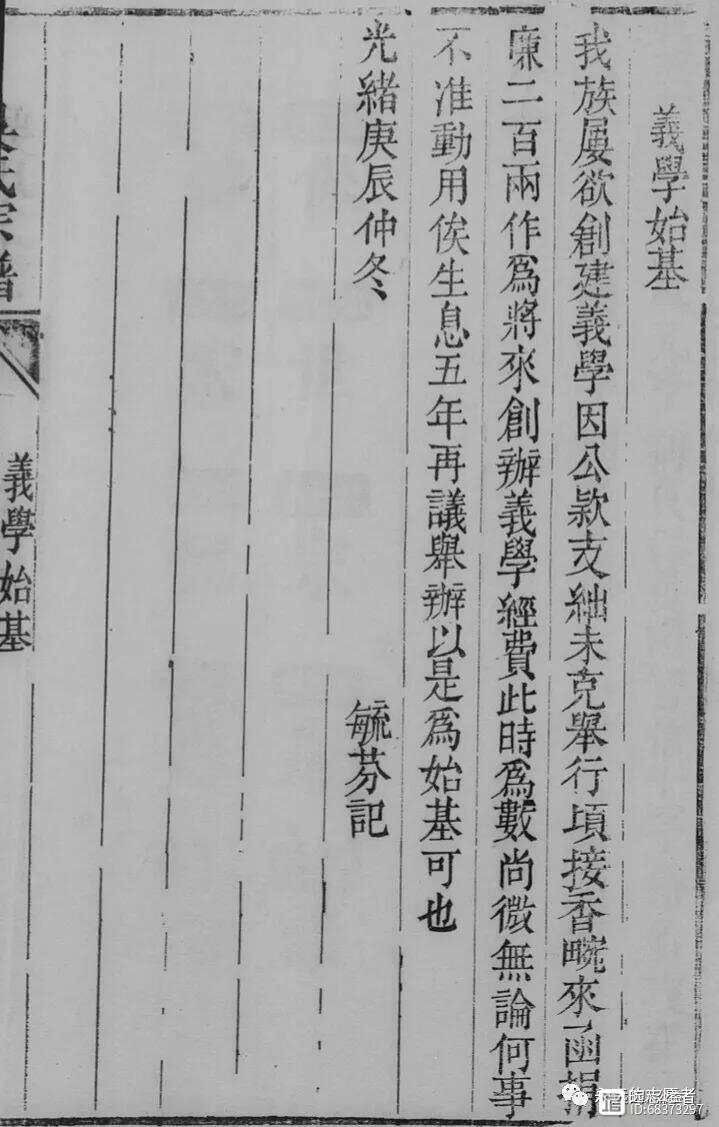 義學始基
我族屢欲創建義學因公款支絀未克舉行頃接香畹來函捐
廉二百兩作爲將來創辦義學經費此時爲數尚微無論何事
不准動用俟生息五年再議舉辦以是爲始基可也
光緒庚辰仲冬
毓芬記
氏宗譜
義學始基
志愿者
ID:68373297